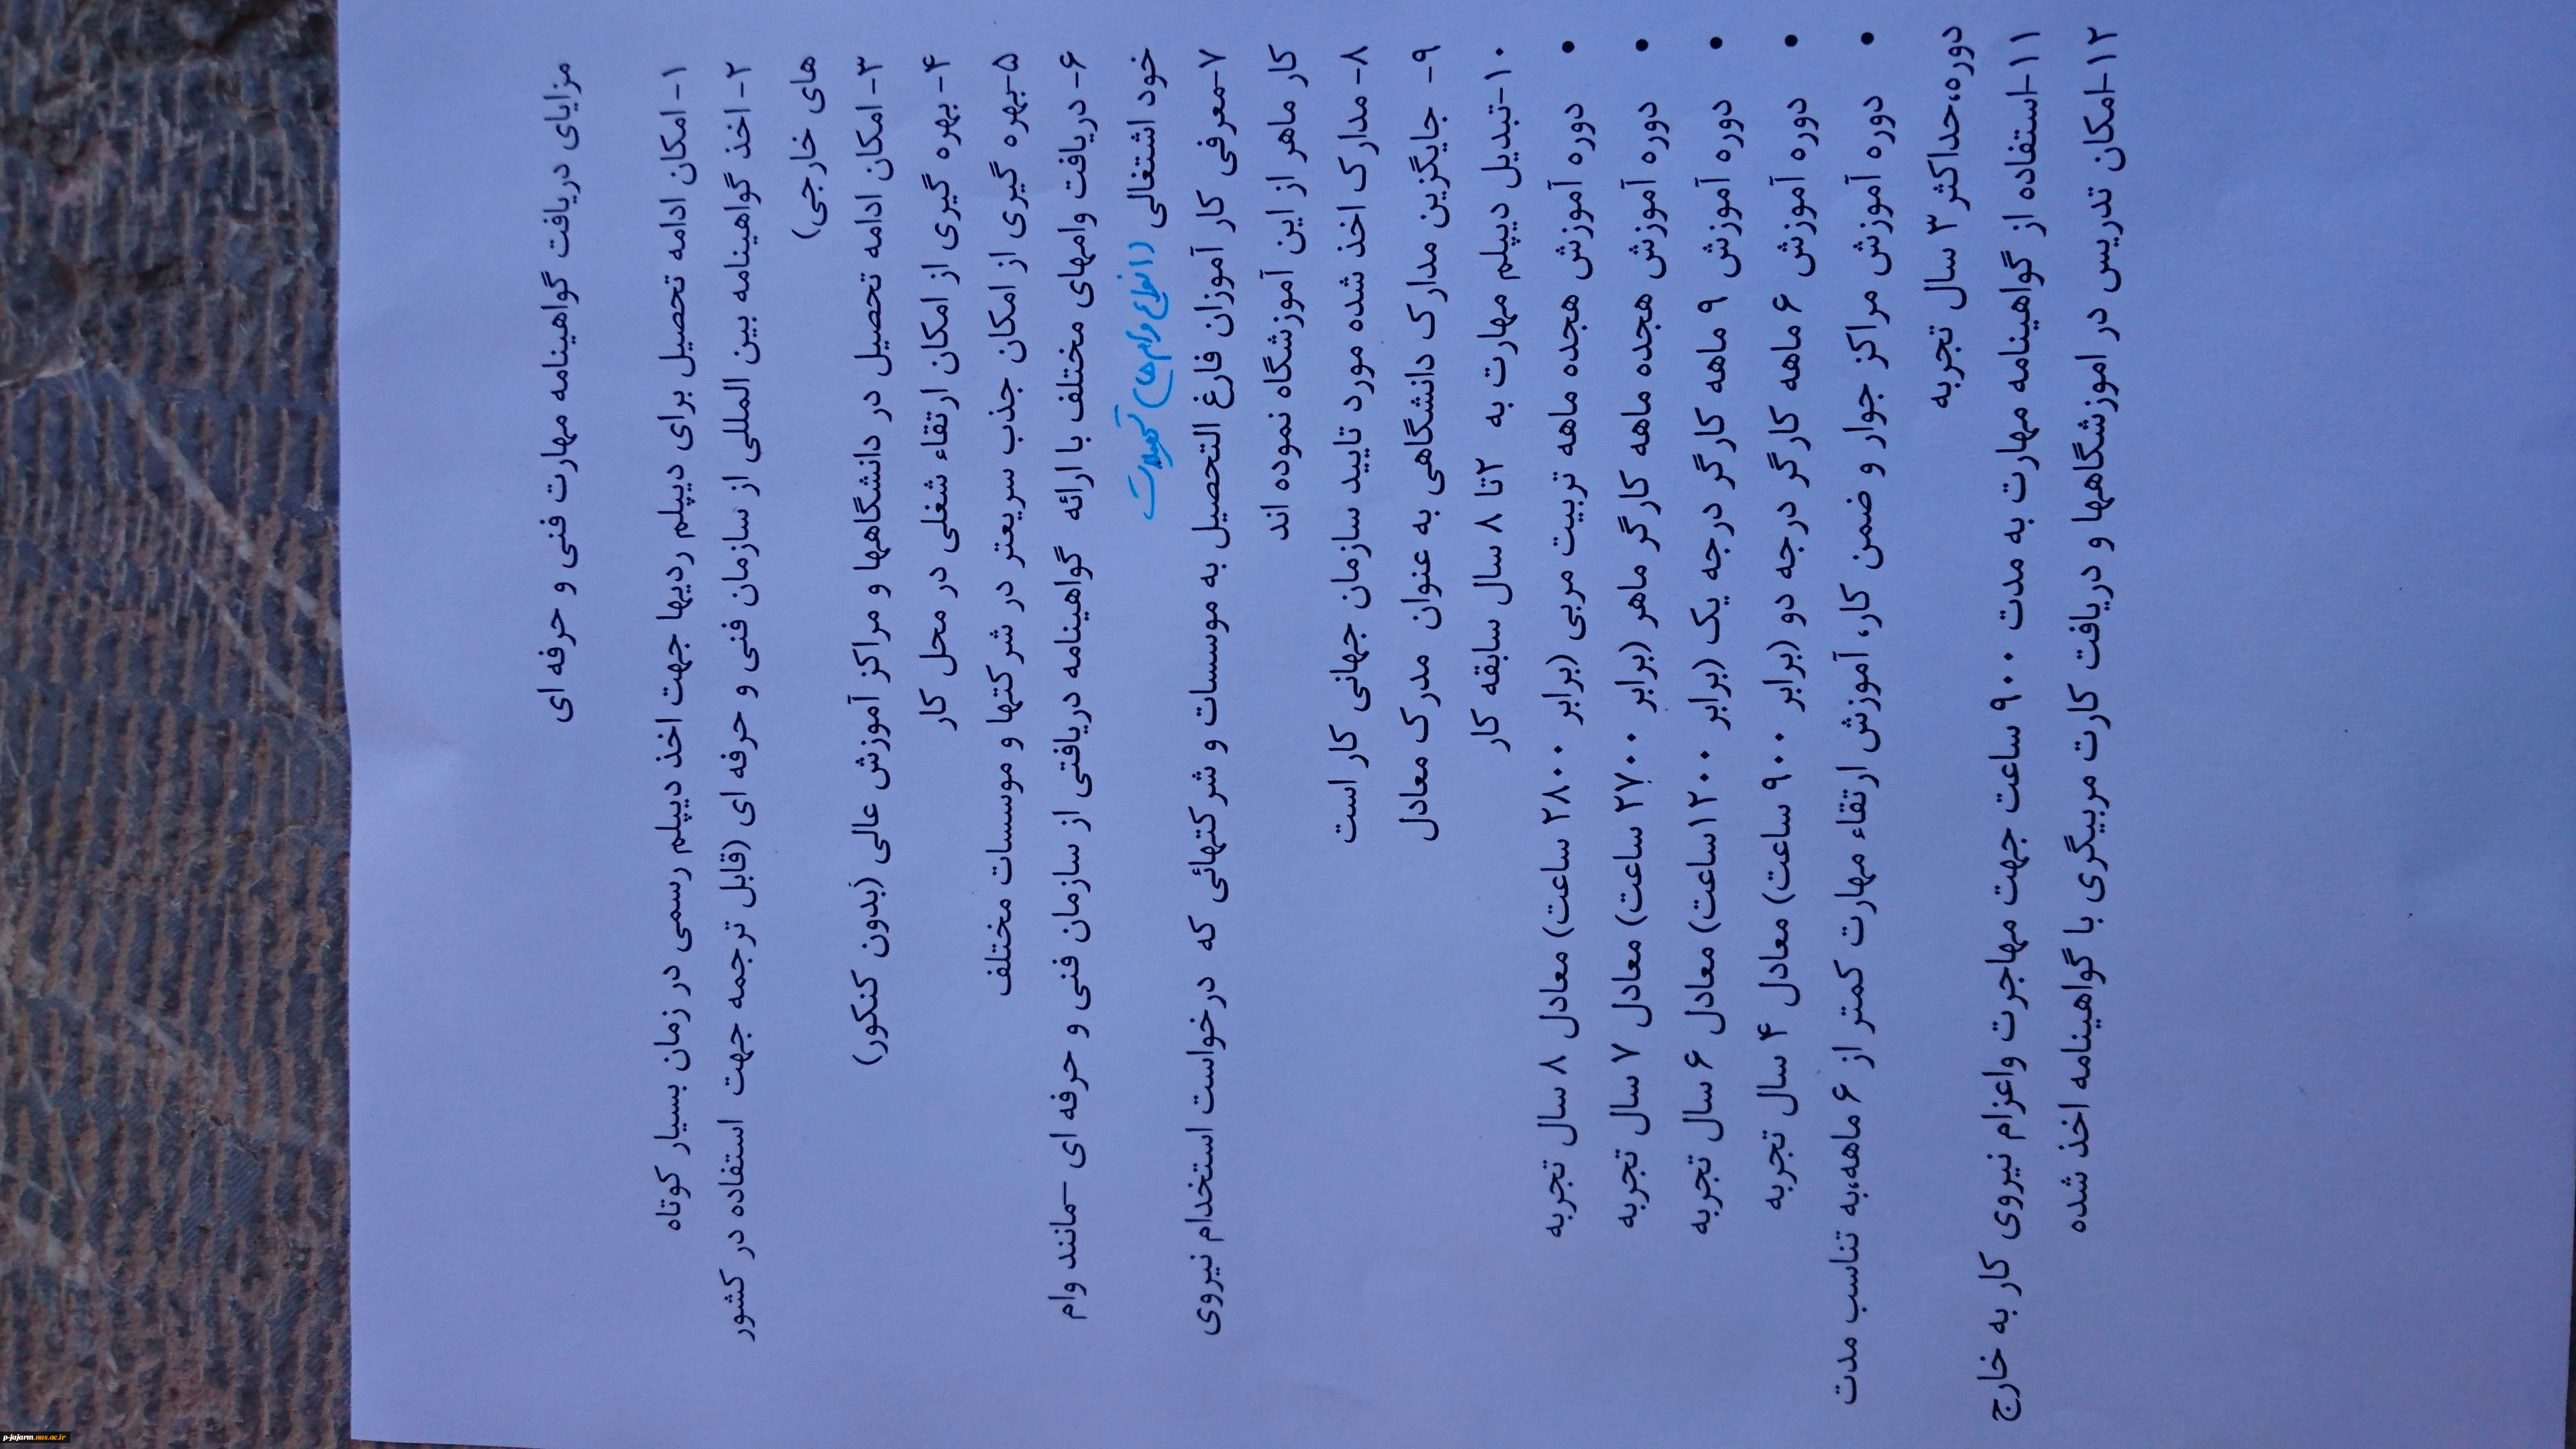 مزایای دریافت گواهینامه مهارت فنی و حرفه ای
۱- امکان ادامه تحصیل برای دیپلم ردیها جهت اخذ دیپلم رسمی در زمان بسیار کوتاه
۲- اخذ گواهینامه بین المللی از سازمان فنی و حرفه ای (قابل ترجمه جهت استفاده در کشور
های خارجی)
۳- امکان ادامه تحصیل در دانشگاهها و مراکز آموزش عالی (بدون کنکور)
۴- بهره گیری از امکان ارتقاء شغلی در محل کار
۵-بهره گیری از امکان جذب سریعتر در شرکتها و موسسات مختلف
۶- دریافت وامهای مختلف با ارائه گواهینامه دریافتی از سازمان فنی و حرفه ای –مانند وام
خود اشتغالی (انواع وام ها) تسهیلات
۷-معرفی کار آموزان فارغ التحصیل به موسسات و شرکتهائی که درخواست استخدام نیروی
کار ماهر از این آموزشگاه نموده اند
۸- مدارک اخذ شده مورد تایید سازمان جهانی کار است
۹- جایگزین مدارک دانشگاهی به عنوان مدرک معادل
۱۰-تبدیل دیپلم مهارت به ۲تا ۸ سال سابقه کار
• دوره آموزش هجده ماهه تربیت مربی (برابر ۲۸۰۰ ساعت) معادل ۸ سال تجربه
• دوره آموزش هجده ماهه کارگر ماهر (برابر ۲۷۰۰ ساعت) معادل ۷ سال تجربه
• دوره آموزش ۹ ماهه کارگر درجه یک (برابر ۱۲۰۰ساعت) معادل ۶ سال تجربه
• دوره آموزش ۶ ماهه کارگر درجه دو (برابر ۹۰۰ ساعت) معادل ۴ سال تجربه
• دوره آموزش مراکز جوار و ضمن کار، آموزش ارتقاء مهارت کمتر از ۶ ماهه،به تناسب مدت
دوره،حداکثر ۳ سال تجربه
۱۱-استفاده از گواهینامه مهارت به مدت ۹۰۰ ساعت جهت مهاجرت واعزام نیروی کار به خارج
۱۲-امکان تدریس در اموزشگاهها و دریافت کارت مربیگری با گواهینامه اخذ شده
p-jajarm.nus.ac.ir